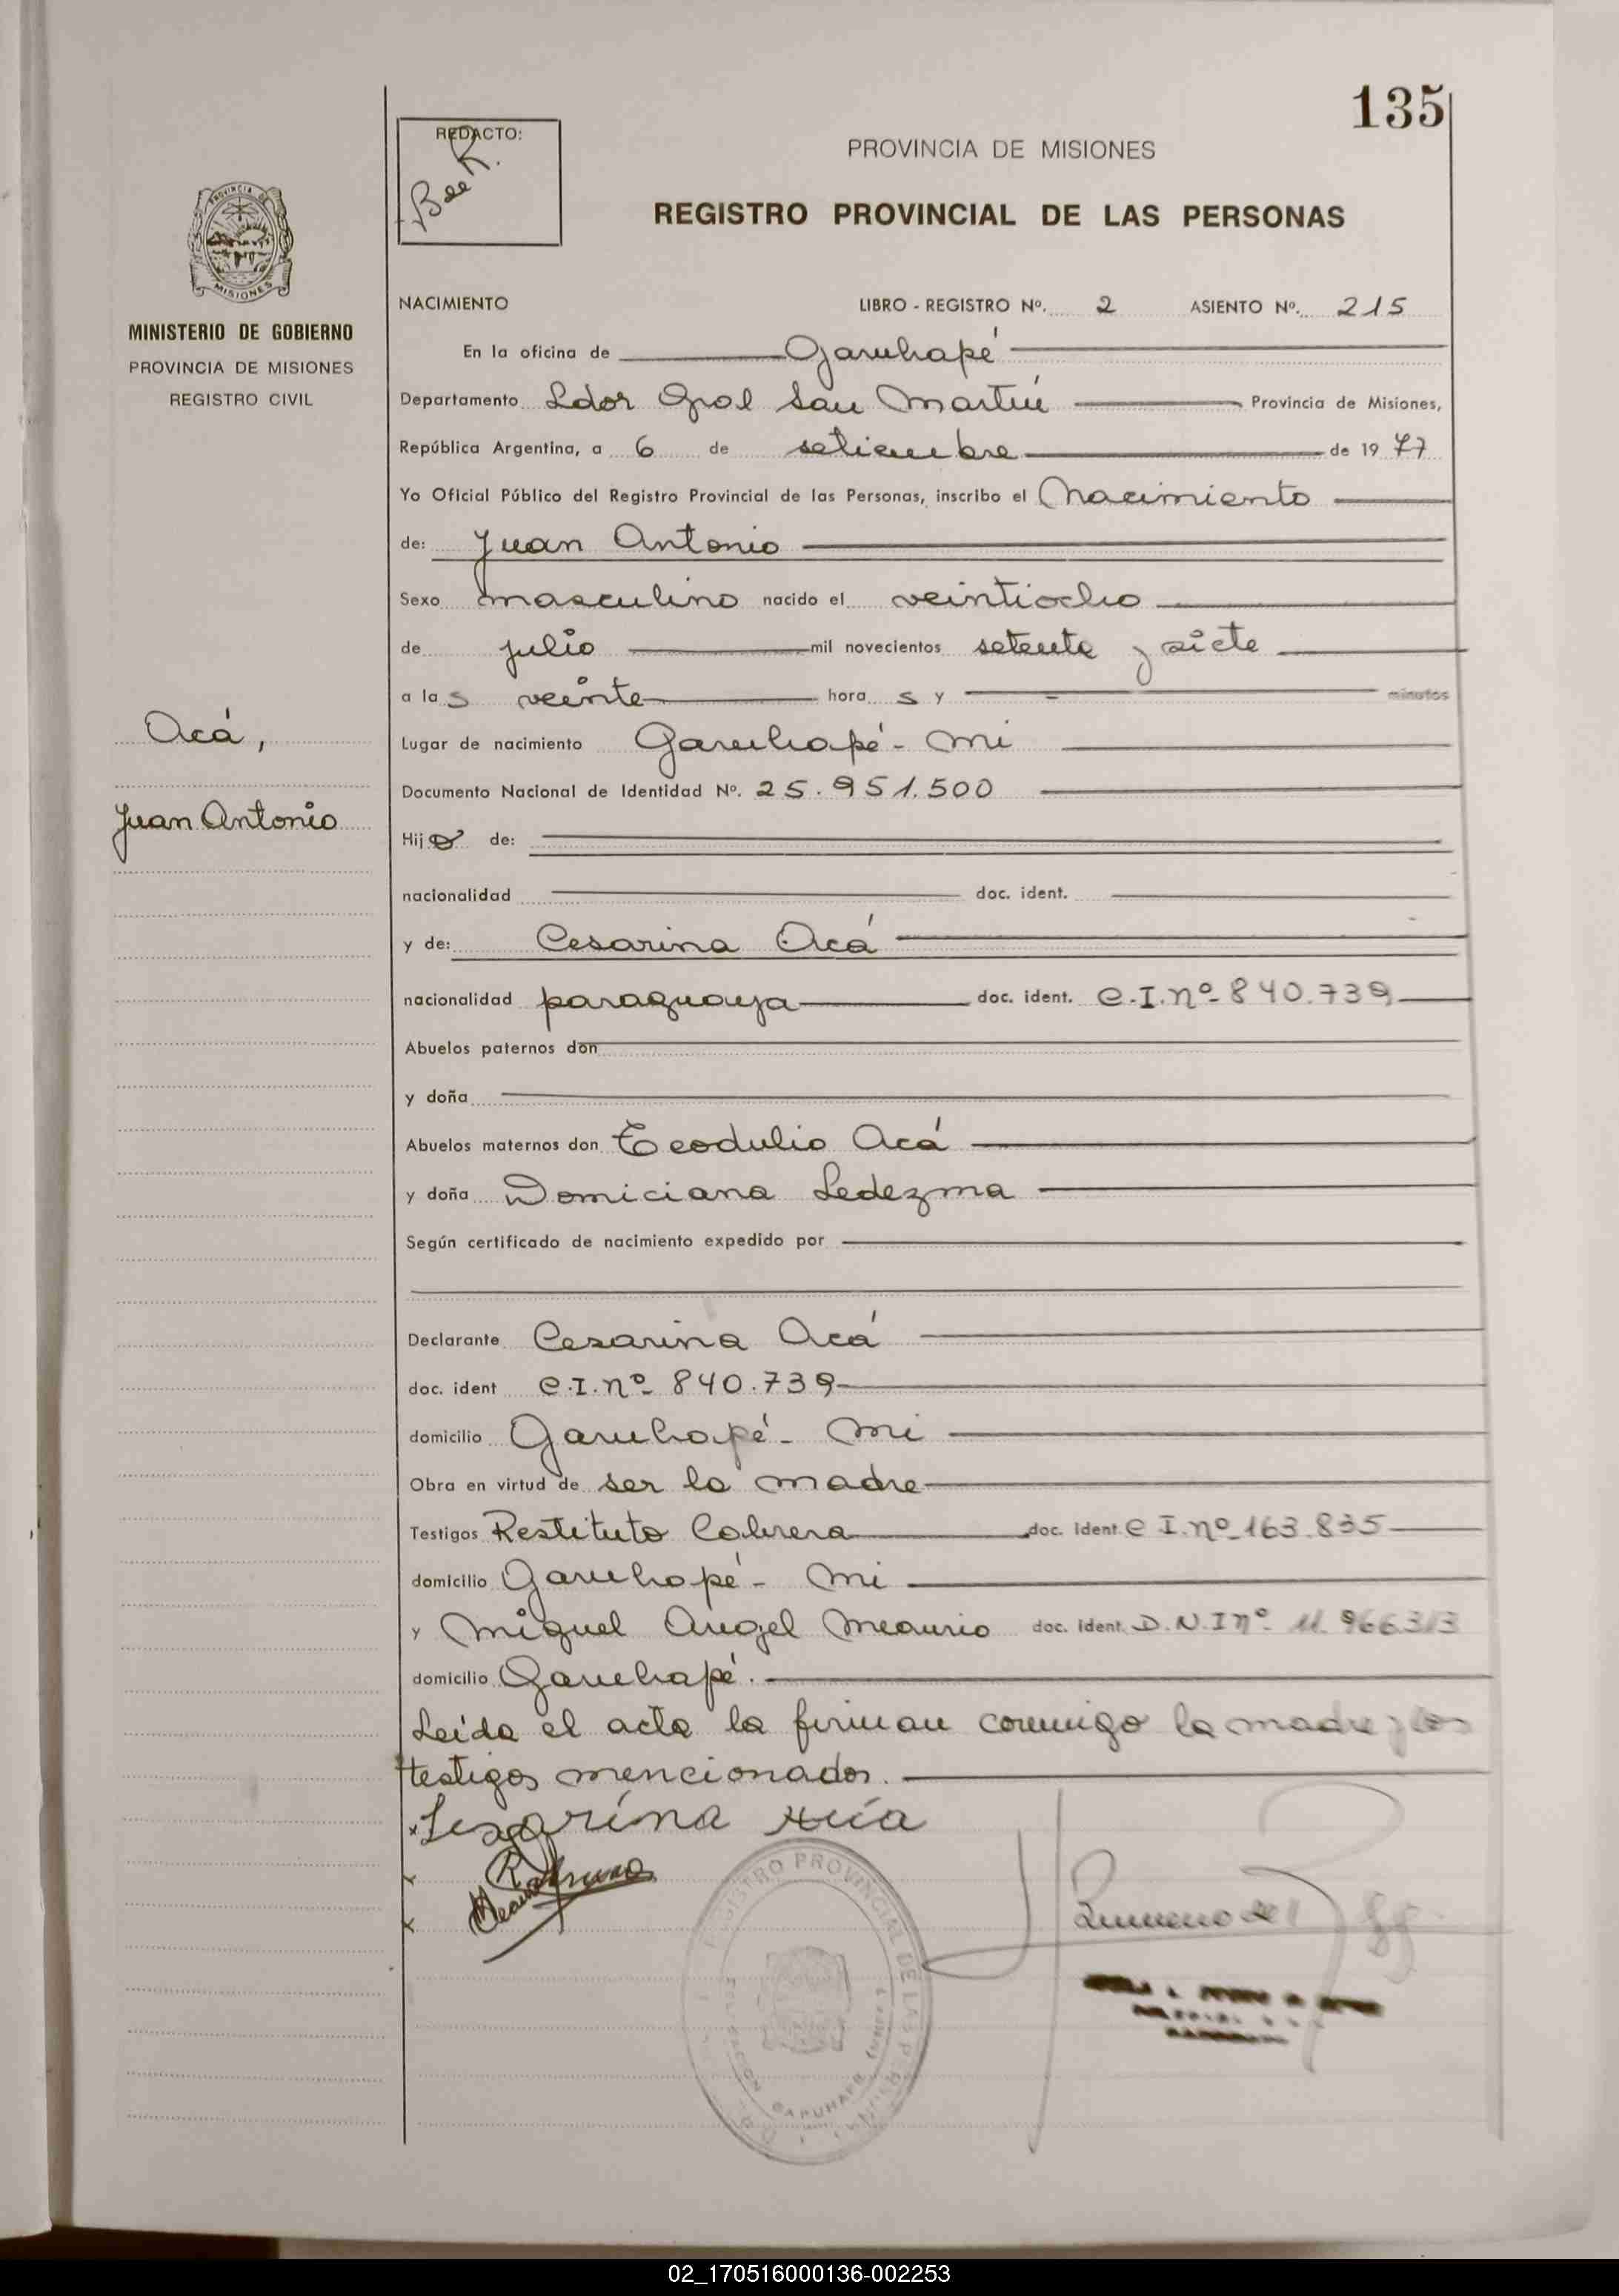 135
REDACTO:
PROVINCIA DE MISIONES
REGISTRO PROVINCIAL DE LAS PERSONAS
PROVINCIA DE
MISIONES
MINISTERIO DE GOBIERNO
PROVINCIA DE MISIONES
REGISTRO CIVIL
NACIMIENTO LIBRO - REGISTRO Nº. 2 ASIENTO Nº. 215
En la oficina de Garuhapé
Departamento Ldor Gral San Martín Provincia de Misiones,
República Argentina, a 6 de setiembre de 1977
Yo Oficial Público del Registro Provincial de las Personas, inscribo el Nacimiento
de: Juan Antonio
Sexo masculino nacido el veintiocho
de julio mil novecientos setenta y siete
a las veinte horas y minutos
Acá,
Lugar de nacimiento Garuhapé - Mi
Documento Nacional de Identidad Nº. 25.951.500
Juan Antonio
Hijo de:
nacionalidad doc. ident.
y de: Cesarina Acá
nacionalidad paraguaya doc. ident. C.I.nº 840.739
Abuelos paternos don
y doña
Abuelos maternos don Teodulio Acá
y doña Domiciana Ledezma
Según certificado de nacimiento expedido por
Declarante Cesarina Acá
doc. ident C.I.nº 840.739
domicilio Garuhapé - Mi
Obra en virtud de ser la madre
Testigos Restituto Cabrera doc. ident. C I.nº 163.835
domicilio Garuhapé - Mi
y Miguel Angel Meaurio doc. ident. D.N.I nº 11.966.313
domicilio Garuhapé.
Leída el acta la firman conmigo la madre y los
testigos mencionados.
REGISTRO PROVINCIAL DE LAS PERSONAS
DELEGACION GARUHAPE
02_170516000136-002253